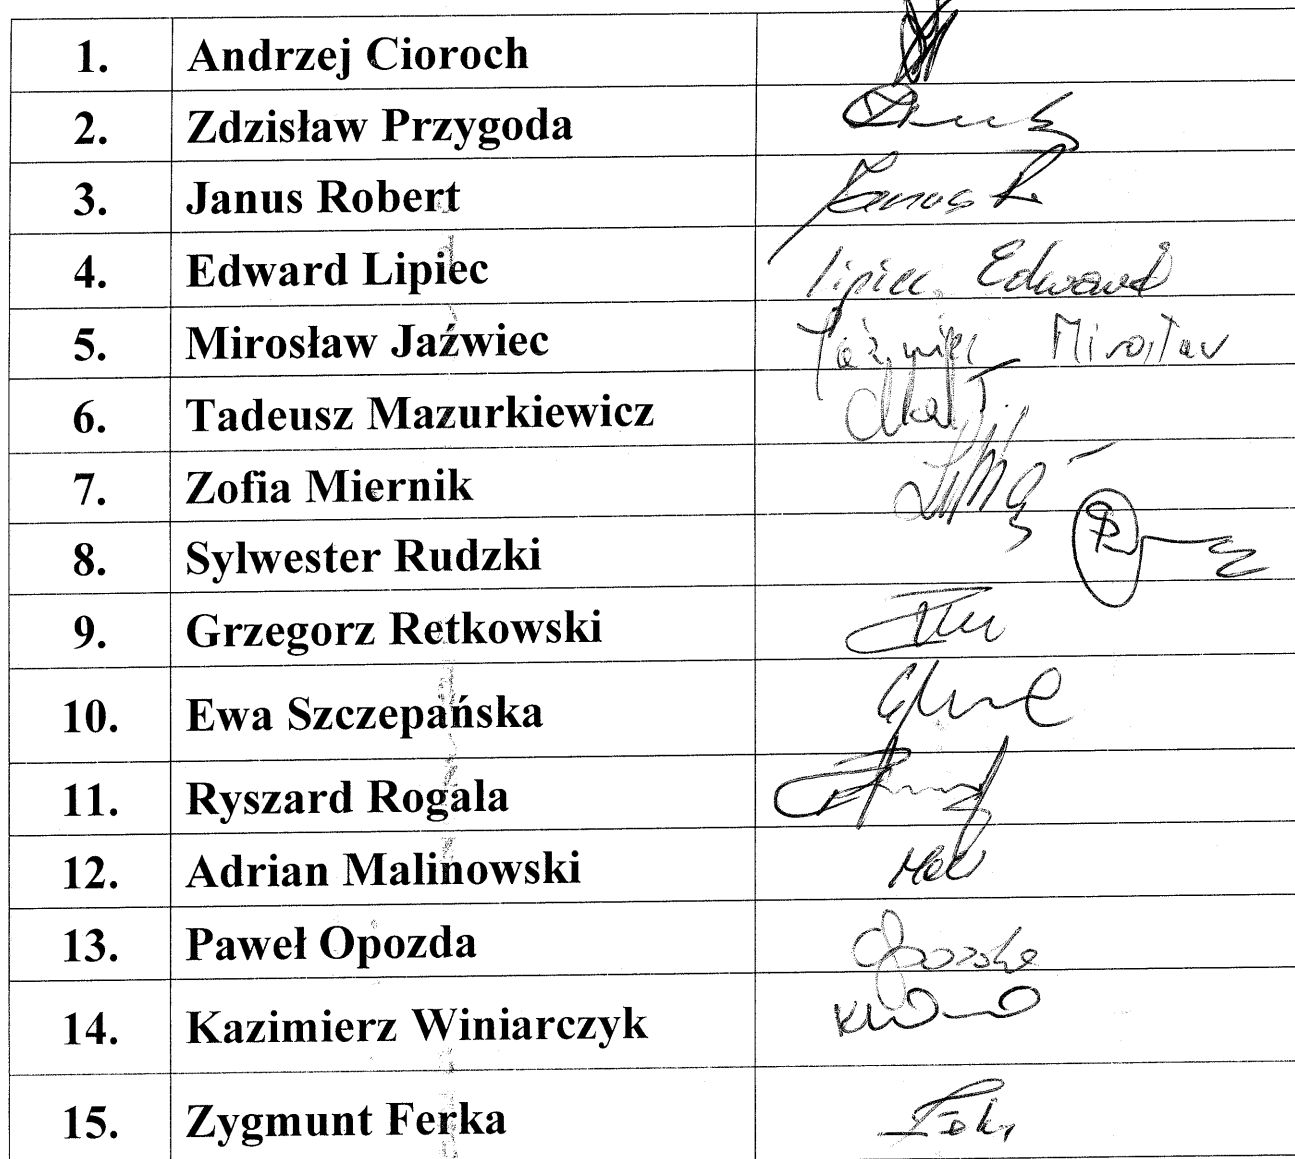 1. Andrzej Cioroch
2. Zdzisław Przygoda
3. Janus Robert Janus R
4. Edward Lipiec Lipiec Edward
5. Mirosław Jaźwiec Jaźwiec Mirosław
6. Tadeusz Mazurkiewicz
7. Zofia Miernik
8. Sylwester Rudzki
9. Grzegorz Retkowski
10. Ewa Szczepańska
11. Ryszard Rogala
12. Adrian Malinowski
13. Paweł Opozda Opozda
14. Kazimierz Winiarczyk
15. Zygmunt Ferka